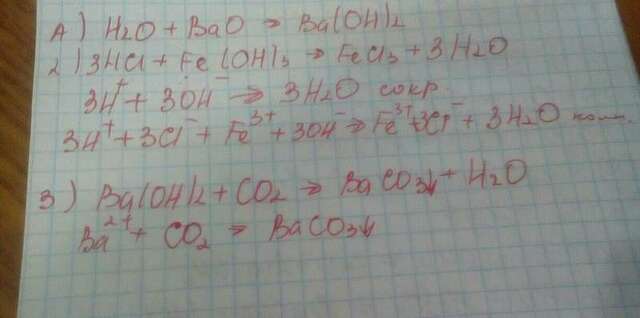 А) H₂O + BaO → Ba(OH)₂
2) 3HCl + Fe(OH)₃ → FeCl₃ + 3H₂O
3H⁺ + 3OH⁻ → 3H₂O сокр.
3H⁺ + 3Cl⁻ + Fe³⁺ + 3OH⁻ → Fe³⁺ 3Cl⁻ + 3H₂O полн.
3) Ba(OH)₂ + CO₂ → BaCO₃↓ + H₂O
Ba²⁺ + CO₂ → BaCO₃↓